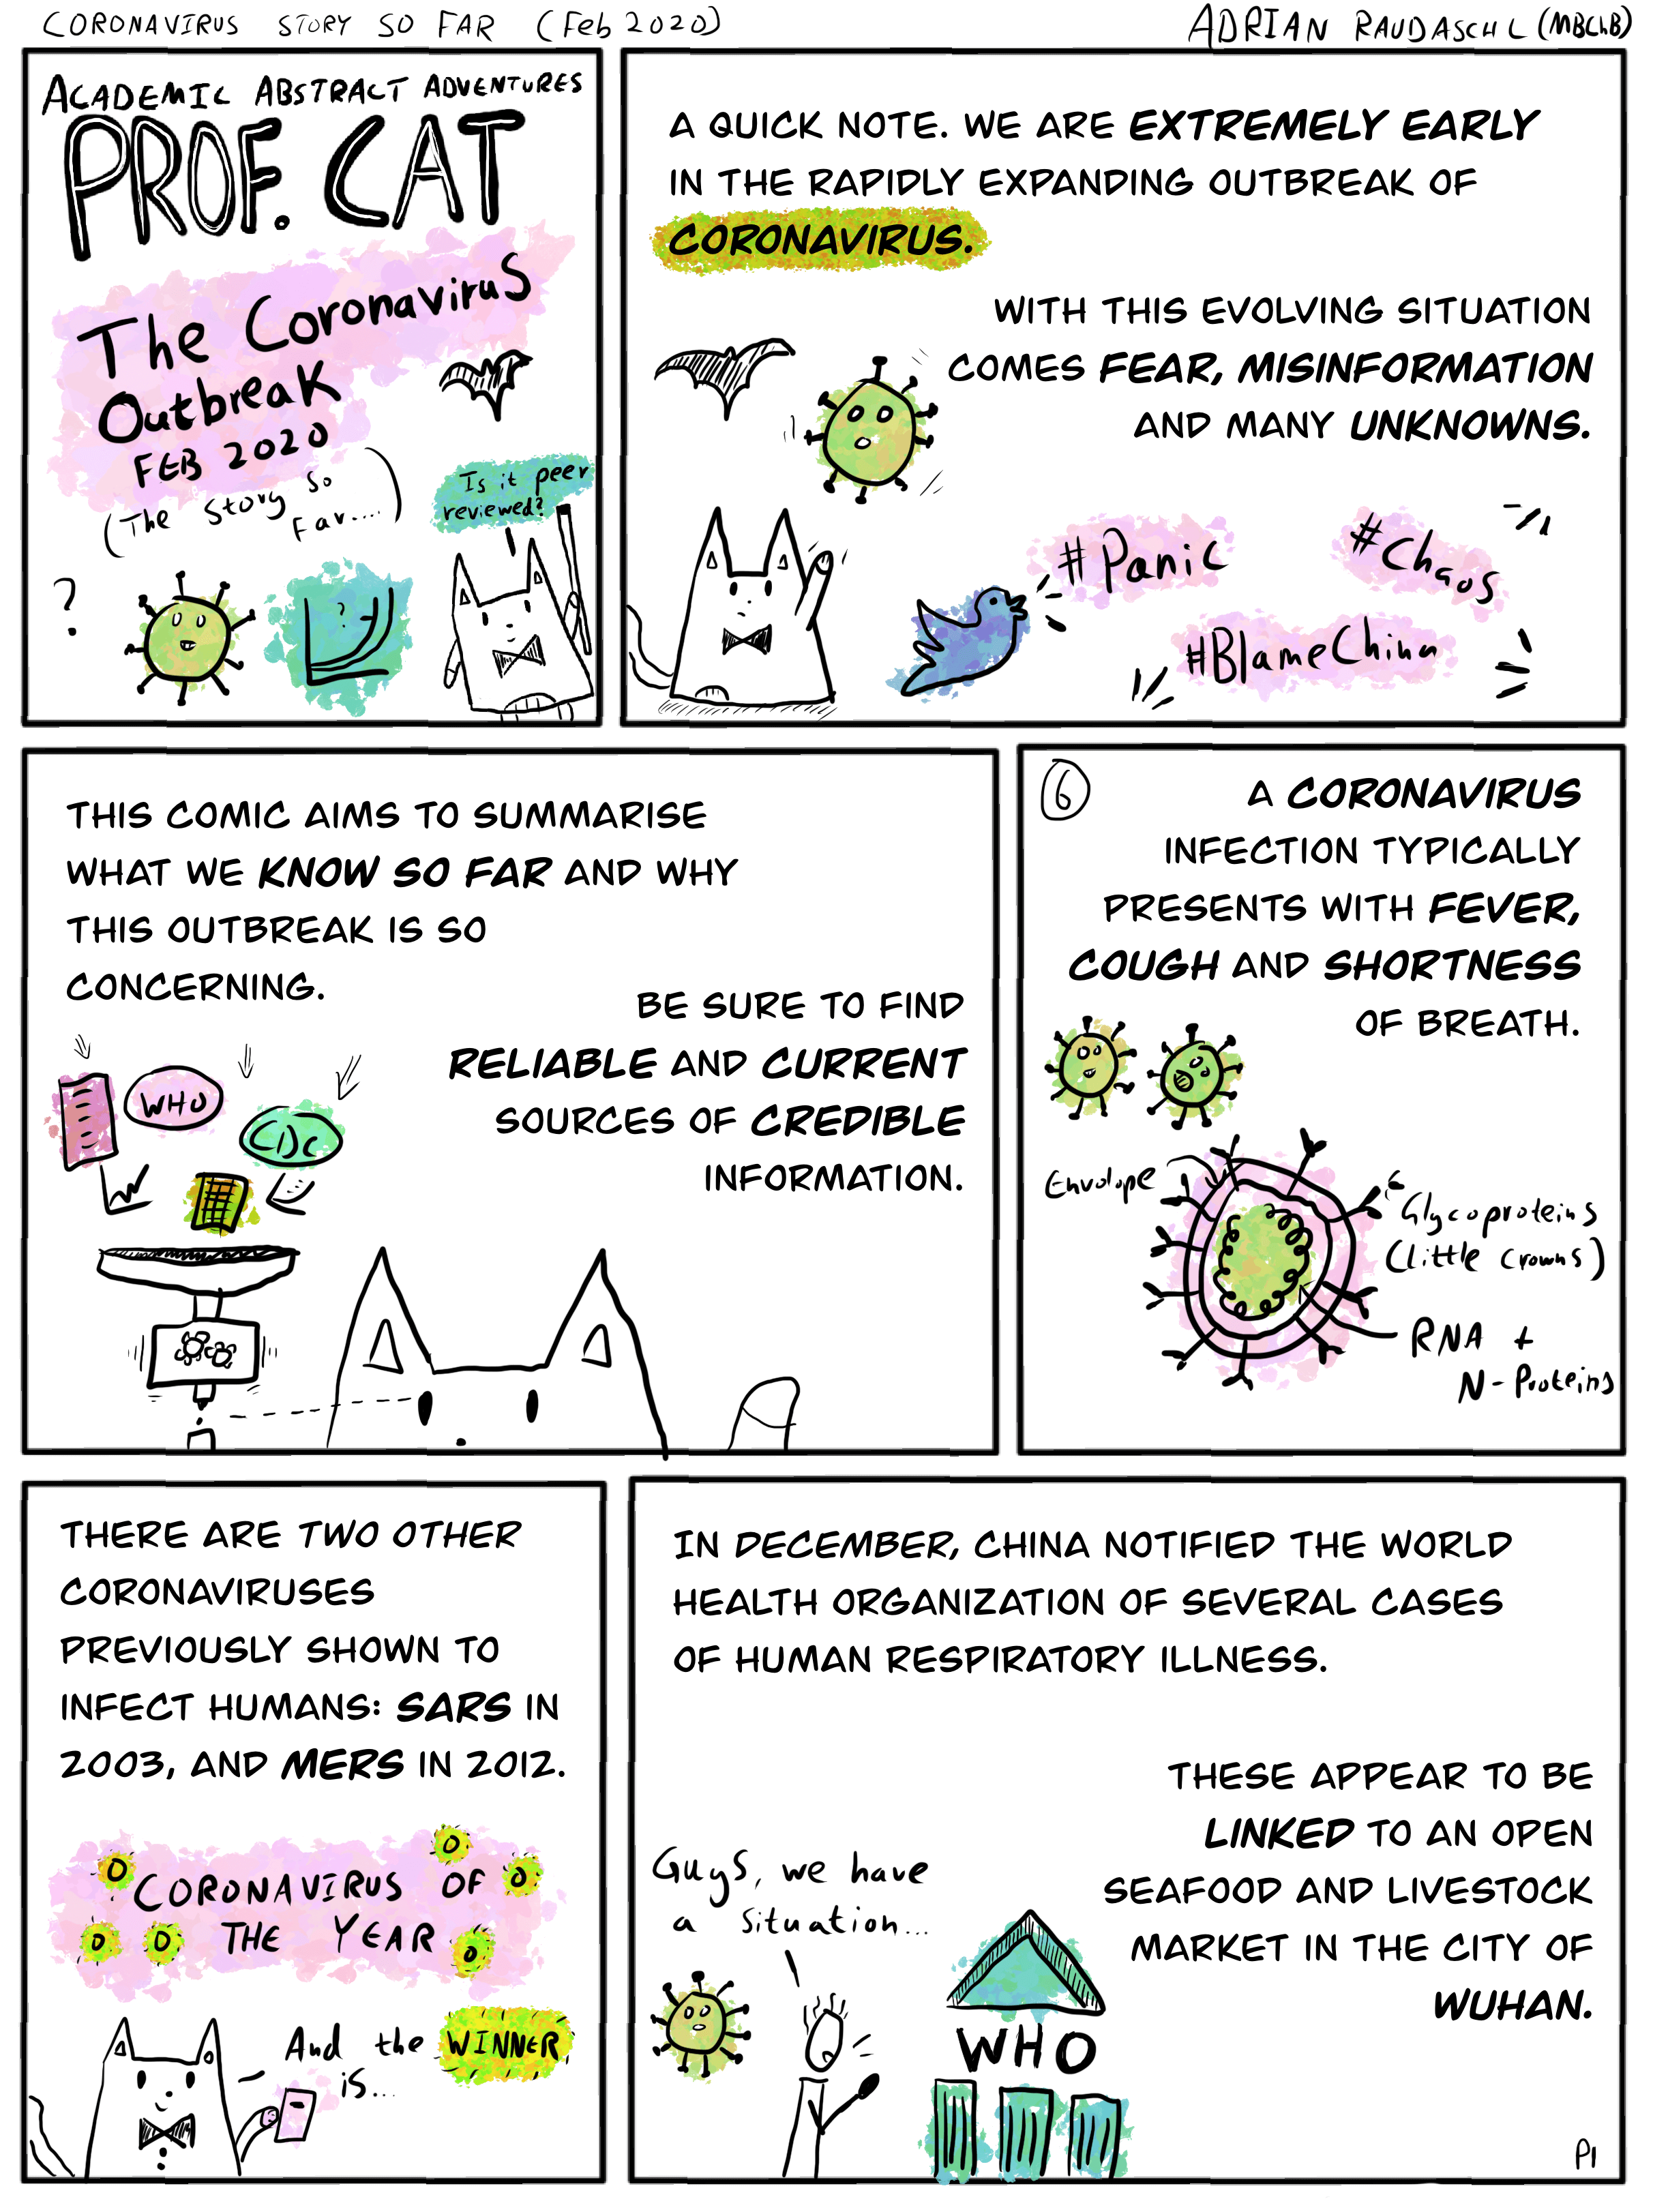 CORONAVIRUS STORY SO FAR (Feb 2020)
ADRIAN RAUDASCHL (MBChB)
ACADEMIC ABSTRACT ADVENTURES
PROF. CAT
The Coronavirus
Outbreak
FEB 2020
(The Story So
Far....)
Is it peer
reviewed?
?
?
A QUICK NOTE. WE ARE EXTREMELY EARLY
IN THE RAPIDLY EXPANDING OUTBREAK OF
CORONAVIRUS.
WITH THIS EVOLVING SITUATION
COMES FEAR, MISINFORMATION
AND MANY UNKNOWNS.
#Panic
#Chaos
#BlameChina
THIS COMIC AIMS TO SUMMARISE
WHAT WE KNOW SO FAR AND WHY
THIS OUTBREAK IS SO
CONCERNING.
BE SURE TO FIND
RELIABLE AND CURRENT
SOURCES OF CREDIBLE
INFORMATION.
WHO
CDC
6
A CORONAVIRUS
INFECTION TYPICALLY
PRESENTS WITH FEVER,
COUGH AND SHORTNESS
OF BREATH.
Envolope
Glycoproteins
(Little crowns)
RNA +
N-Proteins
THERE ARE TWO OTHER
CORONAVIRUSES
PREVIOUSLY SHOWN TO
INFECT HUMANS: SARS IN
2003, AND MERS IN 2012.
CORONAVIRUS OF
THE YEAR
And the WINNER
is...
IN DECEMBER, CHINA NOTIFIED THE WORLD
HEALTH ORGANIZATION OF SEVERAL CASES
OF HUMAN RESPIRATORY ILLNESS.
THESE APPEAR TO BE
LINKED TO AN OPEN
SEAFOOD AND LIVESTOCK
MARKET IN THE CITY OF
WUHAN.
Guys, we have
a situation...
WHO
P1